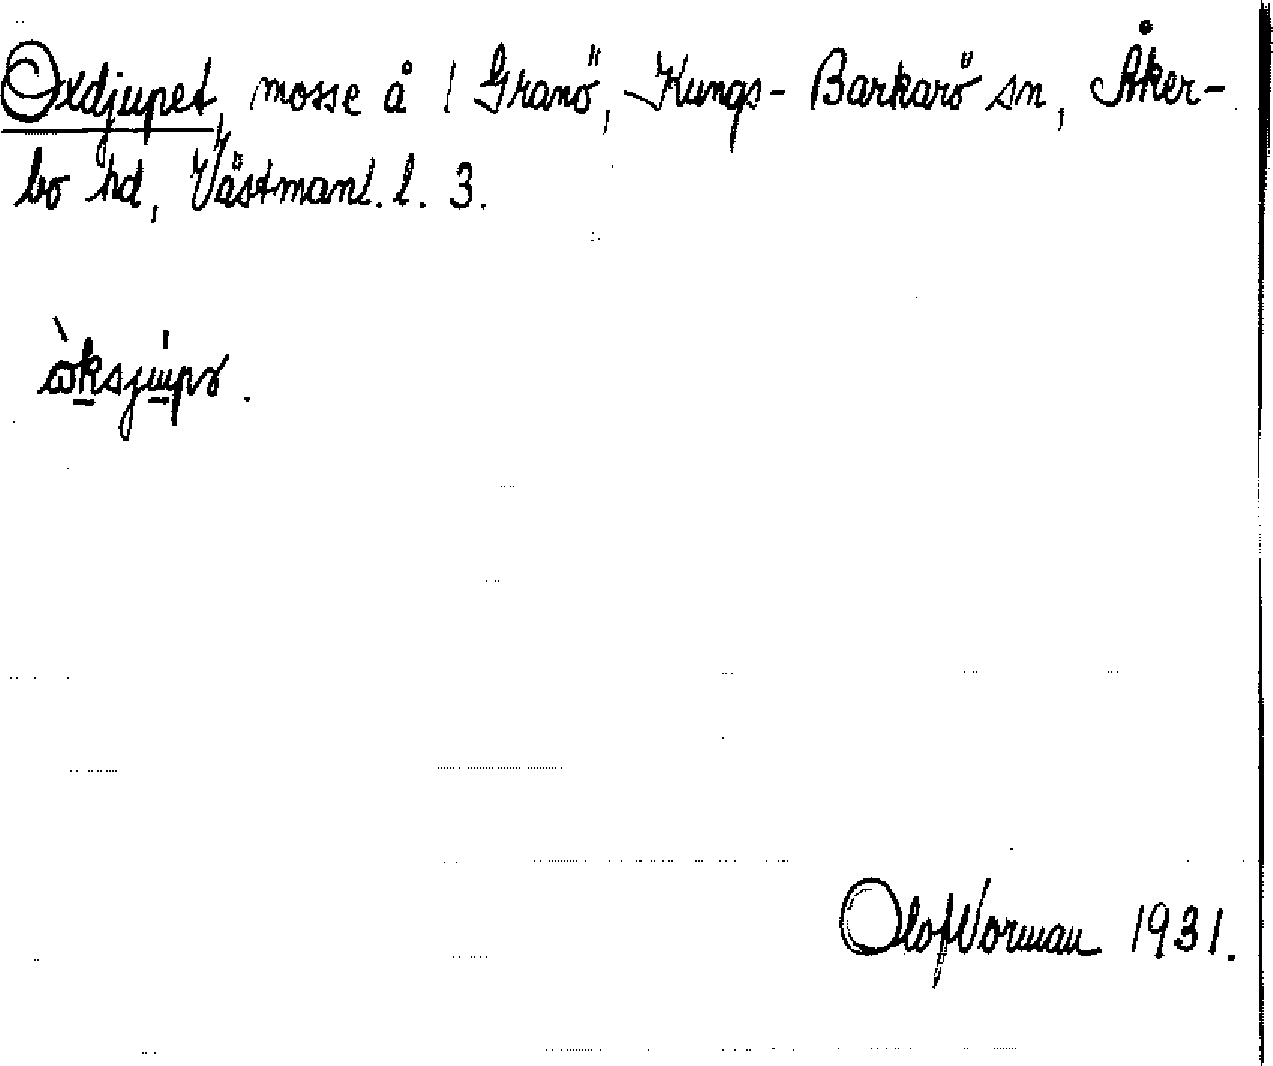 Oxdjupet, mosse å ! Granö, Kungs-Barkarö sn, Åker-
bo hd, Västmanl. l. 3.
Olof Norman 1931.